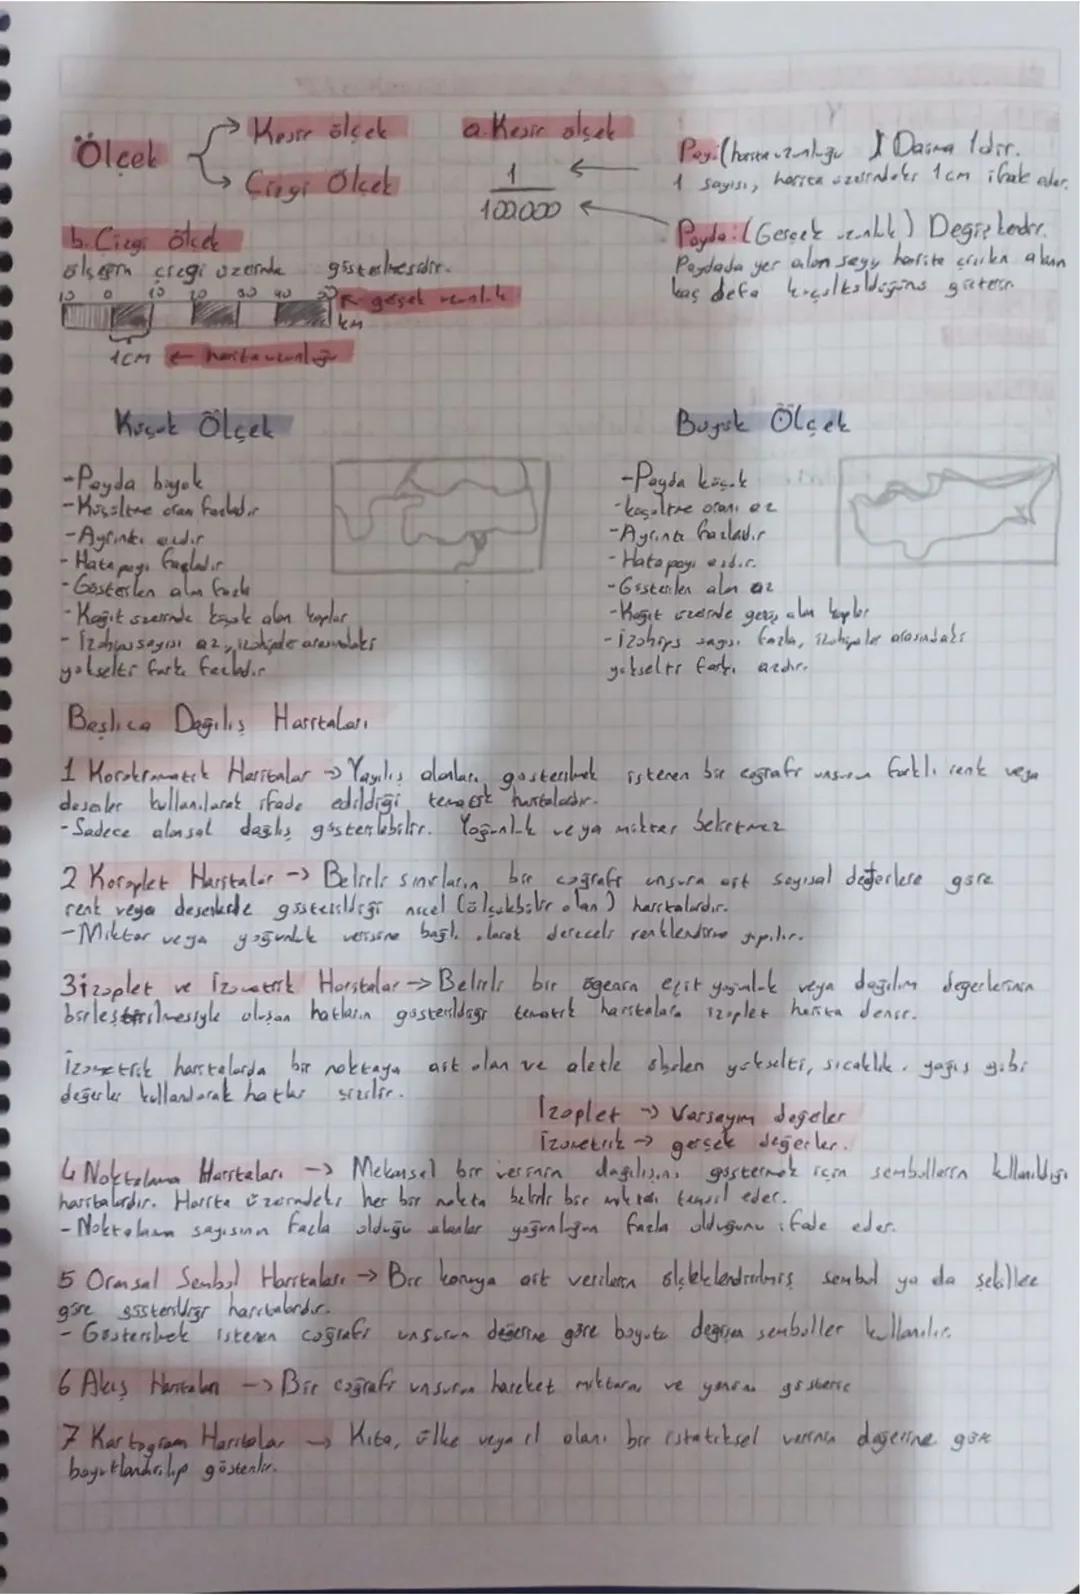 Ölçek
Kesir ölçek
Çizgi Ölçek
a. Kesir ölçek
1
100.000
Pay: (harita uzunluğu) Daima 1dir.
1 sayısı, harita üzerindeki 1cm ifade eder.
Payda: (Gerçek uzunluk) Değişkendir.
Paydada yer alan sayı harita çizilen alanın
kaç defa küçültüldüğünü gösterir
b. Çizgi ölçek
ölçeğin çizgi üzerinde gösterilmesidir.
10 0 10 20 30 40 50
gerçek uzunluk
km
1cm ← harita uzunluğu
Küçük Ölçek
-Payda büyük
-Küçültme oranı fazladır
-Ayrıntı azdır
-Hata payı fazladır
-Gösterilen alan fazla
-Kağıt üzerinde küçük alan kaplar
-İzohips sayısı az, izohipsler arasındaki
yükselti farkı fazladır
Büyük Ölçek
-Payda küçük
-küçültme oranı az
-Ayrıntı fazladır
-Hata payı azdır.
-Gösterilen alan az
-Kağıt üzerinde geniş alan kaplar
-izohips sayısı fazla, izohipsler arasındaki
yükselti farkı azdır.
Başlıca Dağılış Haritaları
1 Korokromatik Haritalar → Yayılış alanları gösterilmek istenen bir coğrafi unsurun farklı renk veya
desenler kullanılarak ifade edildiği tematik haritalardır.
-Sadece alansal dağılış gösterilebilir. Yoğunluk veya miktar belirtmez
2 Koroplet Haritalar → Belirli sınırların bir coğrafi unsura ait sayısal değerlere göre
renk veya desenlerle gösterildiği nicel (ölçülebilir olan) haritalardır.
-Miktar veya yoğunluk verisine bağlı olarak dereceli renklendirme yapılır.
3 izoplet ve İzometrik Haritalar → Belirli bir ögenin eşit yoğunluk veya dağılım değerlerinin
birleştirilmesiyle oluşan hatların gösterildiği tematik haritalara izoplet harita denir.
İzometrik haritalarda bir noktaya ait olan ve aletle ölçülen yükselti, sıcaklık, yağış gibi
değerler kullanılarak hatlar çizilir.
İzoplet → Varsayım değerler
İzometrik → gerçek değerler.
4 Noktalama Haritaları → Mekansal bir verinin dağılışını göstermek için sembollerin kullanıldığı
haritalardır. Harita üzerindeki her bir nokta belirli bir miktarı temsil eder.
-Noktalama sayısının fazla olduğu alanlar yoğunluğun fazla olduğunu ifade eder.
5 Oransal Sembol Haritaları → Bir konuya ait verilerin ölçeklendirilmiş sembol ya da şekillere
göre gösterildiği haritalardır.
- Gösterilmek istenen coğrafi unsurun değerine göre boyutu değişen semboller kullanılır.
6 Akış Haritaları → Bir coğrafi unsurun hareket miktarını ve yönünü gösterir
7 Kartogram Haritalar → Kıta, ülke veya il alanı bir istatiksel verinin değerine göre
boyutlandırılıp gösterilir.